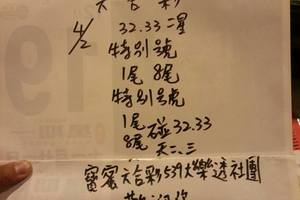 六合彩
4/2
32.33二星
特別號
1尾 8尾
特別号虎
1尾
8尾 碰32.33
天二、三
蜜蜜六合彩539大樂透社團